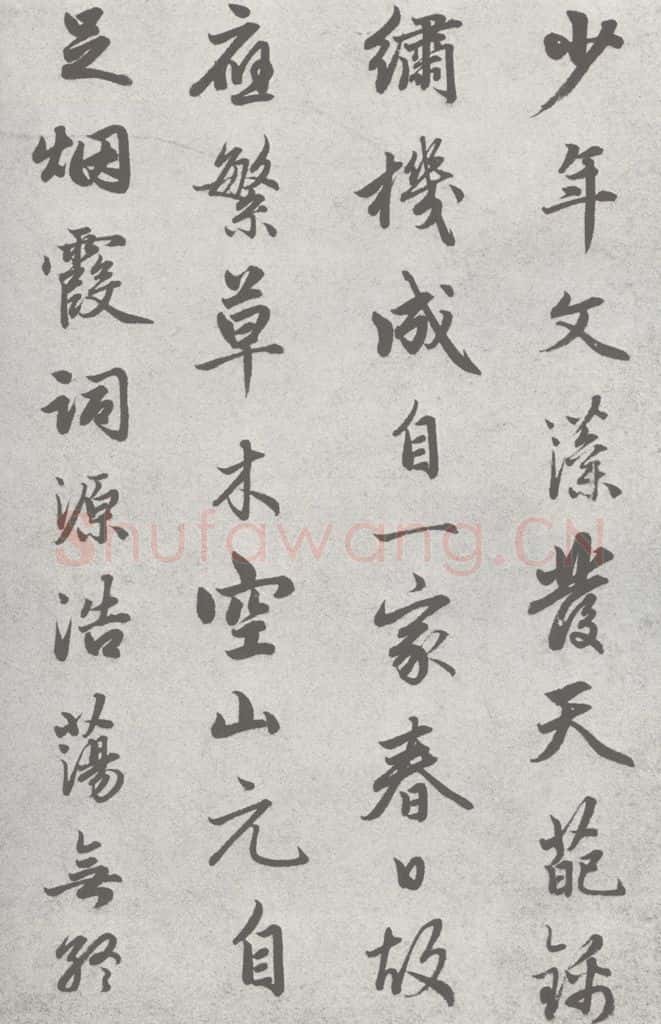 少年文藻發天葩錦
繡機成自一家春日故
應繁草木空山元自
足烟霞詞源浩蕩無終
Shufawang.CN